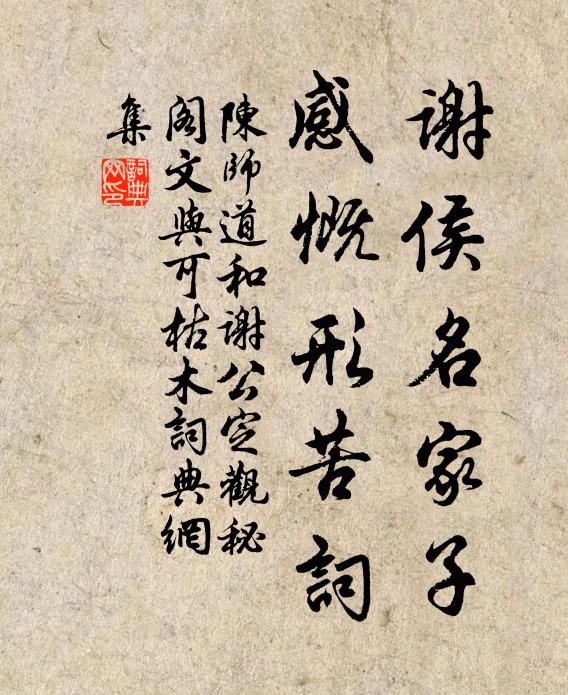 謝侯名家子
感慨形苦詞
陳師道和謝公定觀秘
閣文與可枯木詞典網
集
詞典
网印